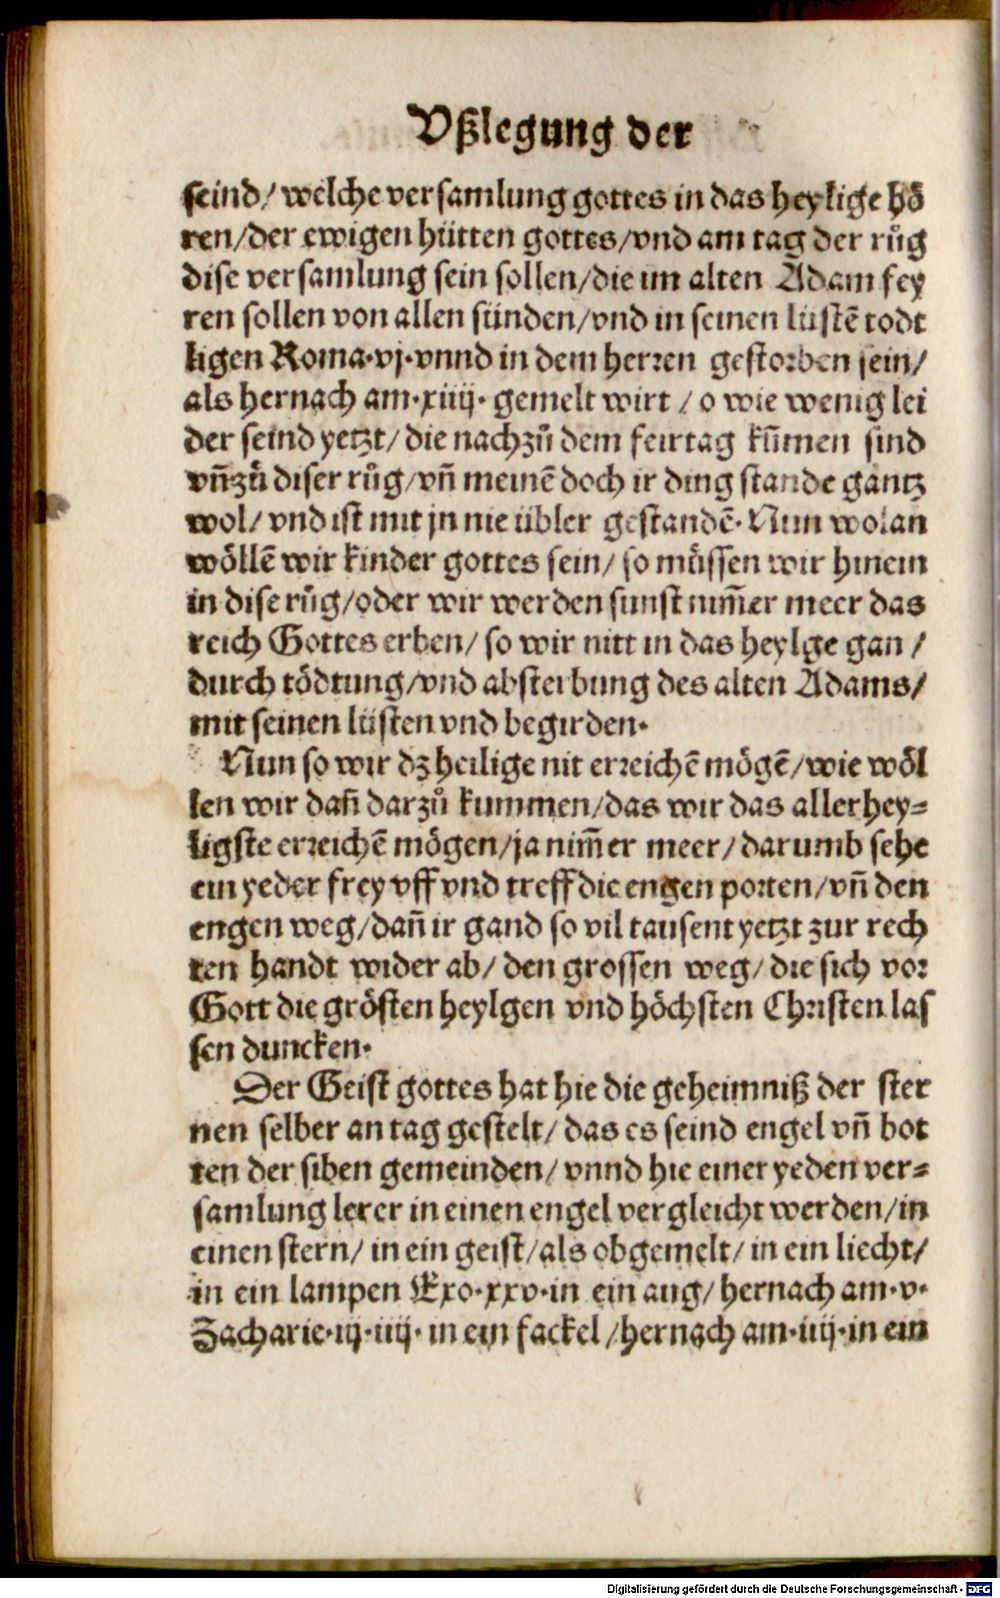 Vßlegung der
seind/ welche versamlung gottes in das heylige hö
ren/der ewigen hütten gottes/vnd am tag der růg
dise versamlung sein sollen/die im alten Adam fey
ren sollen von allen sünden/vnd in seinen lüstē todt
ligen Roma·vj·vnnd in dem herren gestorben sein/
als hernach am·xiiij· gemelt wirt / o wie wenig lei
der seind yetzt/ die nachzů dem feirtag kūmen sind
vn̄zů diser růg/vn̄ meinē doch ir ding stande gantz
wol/ vnd ist mit jn nie übler gestandē· Nun wolan
wöllē wir kinder gottes sein/ so müssen wir hinein
in dise růg/oder wir werden sunst nim̄er meer das
reich Gottes erben/ so wir nitt in das heylge gan /
durch tödtung/vnd absterbung des alten Adams/
mit seinen lüsten vnd begirden·
Nun so wir dz heilige nit erreichē mögē/wie wöl
len wir dan̄ darzů kummen/das wir das allerhey=
ligste erreichē mögen/ja nim̄er meer/ darumb sehe
ein yeder frey vff vnd treff die engen porten/vn̄ den
engen weg/dan̄ ir gand so vil tausent yetzt zur rech
ten handt wider ab/ den grossen weg/ die sich vor
Gott die grösten heylgen vnd höchsten Christen las
sen duncken·
Der Geist gottes hat hie die geheimniß der ster
nen selber an tag gestelt/ das es seind engel vn̄ bot
ten der siben gemeinden/ vnnd hie einer yeden ver=
samlung lerer in einen engel vergleicht werden/in
einen stern/ in ein geist/als obgemelt/ in ein liecht/
in ein lampen Exo·xxv·in ein aug/ hernach am·v·
Zacharie·iij·iiij· in ein fackel /hernach am·iiij·in ein
Digitalisierung gefördert durch die Deutsche Forschungsgemeinschaft - DFG